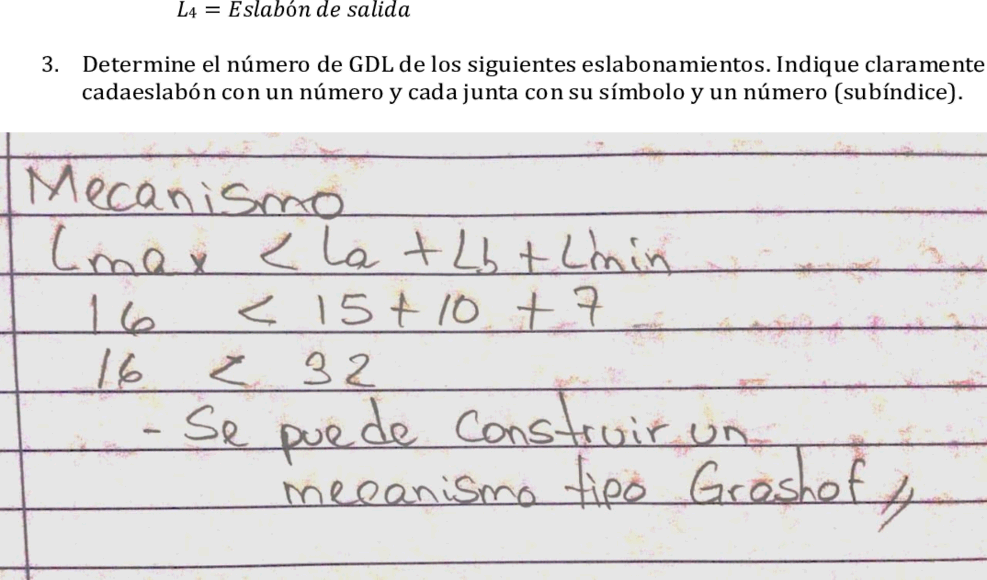 L₄ = Eslabón de salida
3. Determine el número de GDL de los siguientes eslabonamientos. Indique claramente
cadaeslabón con un número y cada junta con su símbolo y un número (subíndice).
Mecanismo
Lmax < La + Lb + Lmin
16 < 15 + 10 + 7
16 < 32
- Se puede Construir un
mecanismo tipo Grashof //